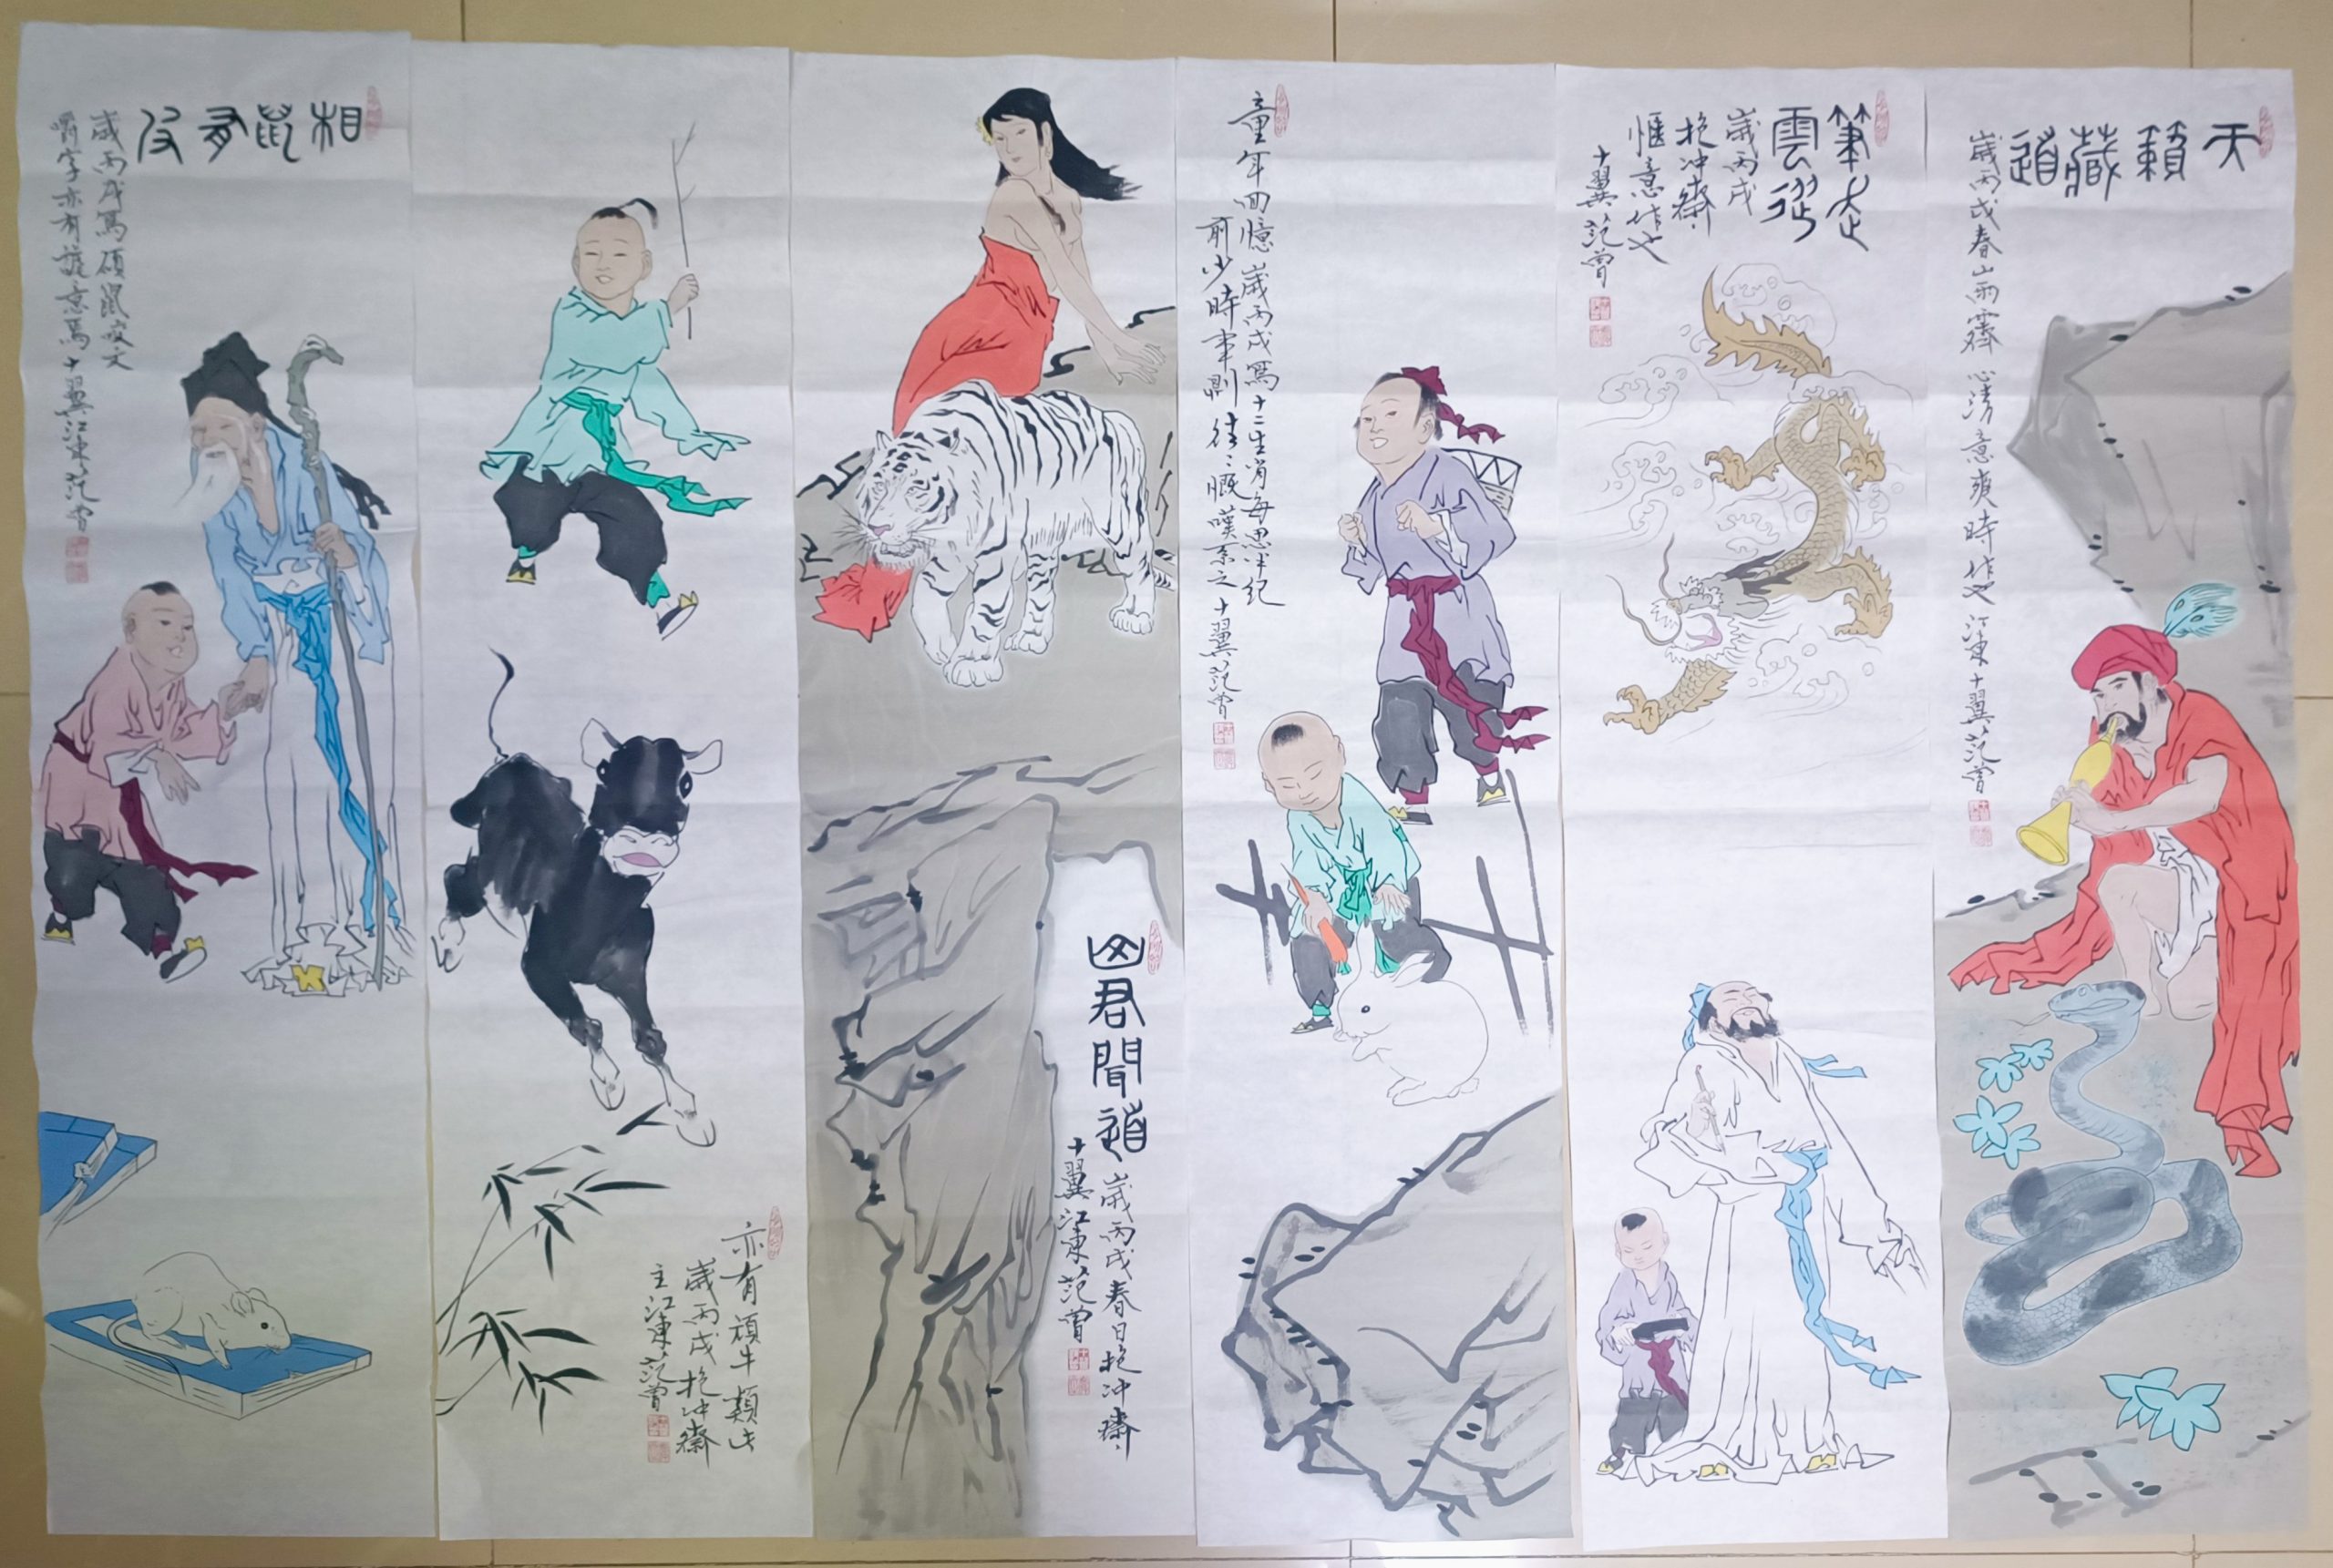 相鼠有皮
歲丙戌寫碩鼠皮文
嚼字亦有諧意焉十翼江東范曾
亦有頑牛類此
歲丙戌抱冲齋
主江東范曾
山君聞道
歲丙戌春日抱冲齋
十翼江東范曾
童年回憶歲丙戌寫十二生肖每思半紀
前少時事則往〻慨嘆系之十翼范曾
筆走
雲從
歲丙戌
抱冲齋
愜意作也
十翼范曾
天籟藏道
歲丙戌春山雨霽心清意爽時作也江東十翼范曾